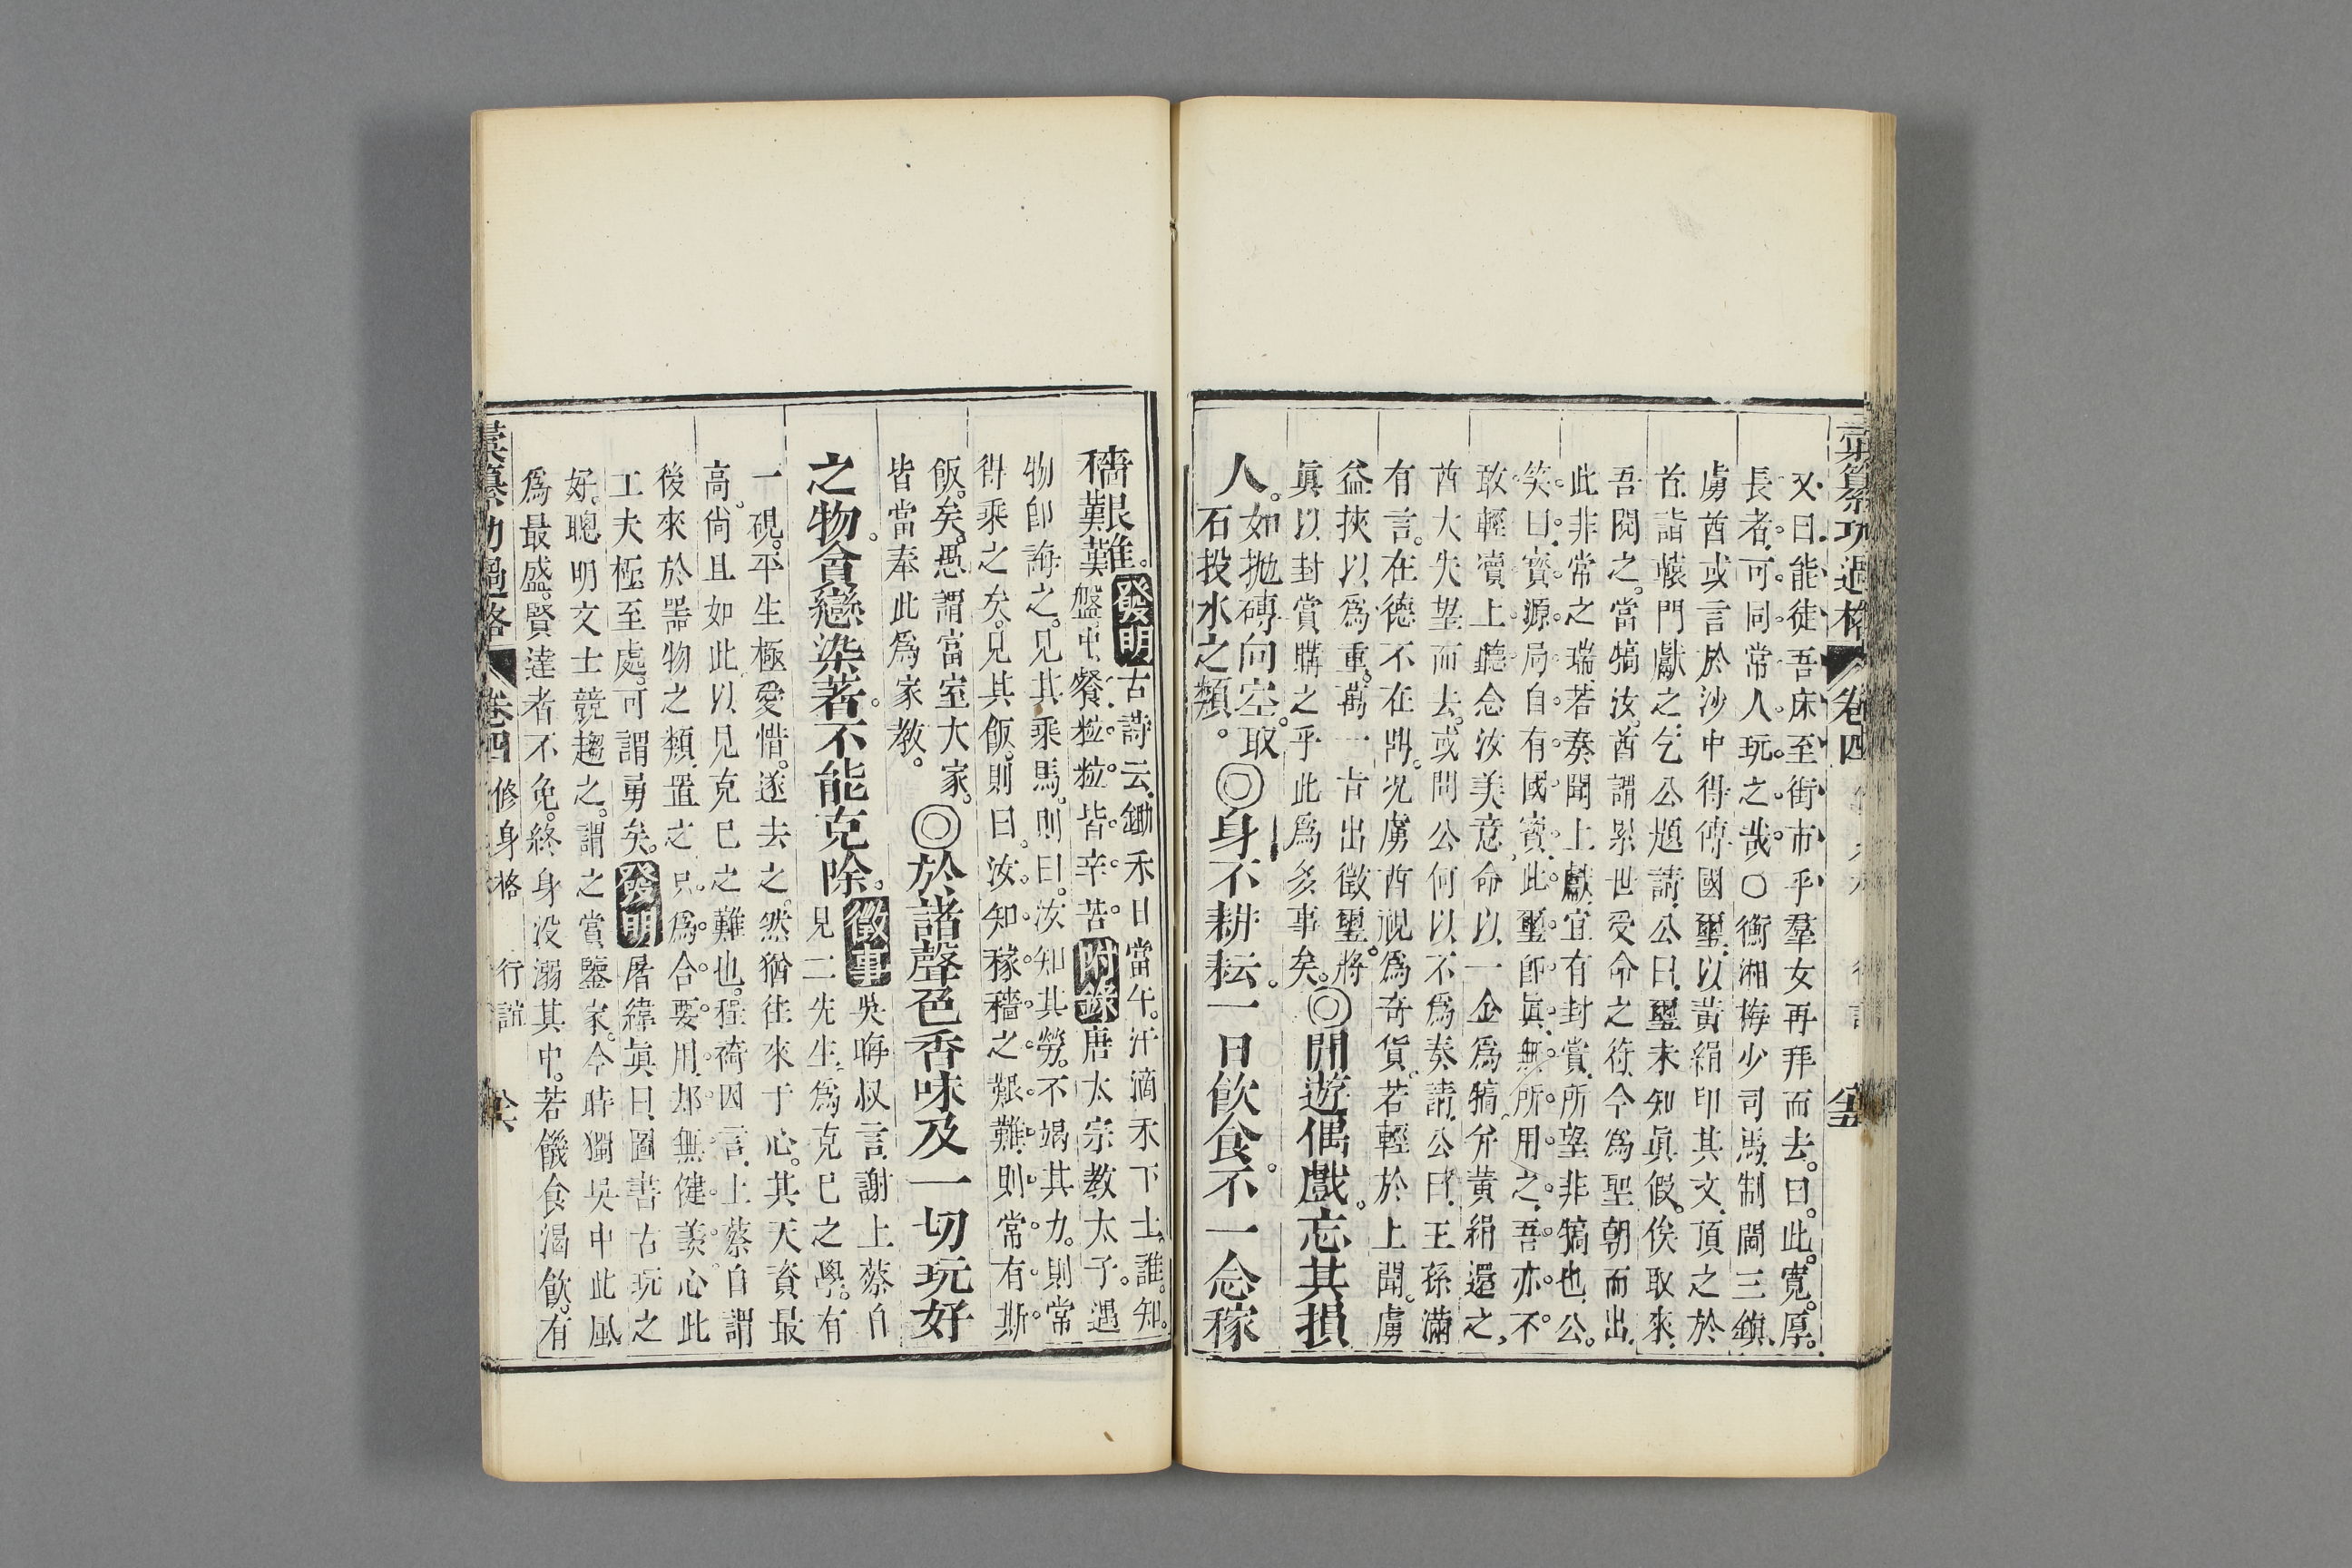 彙纂功過格 卷四
又曰能徒吾床至街市乎羣女再拜而去。曰。此。寬。厚。
長者。可。同。常。人。玩。之。哉。○衡湘梅少司馬制閫三鎮、
虜酋或言於沙中得傳國璽、以黃絹印其文、頂之於
首、詣轅門獻之、乞公題請、公曰、璽未知眞假。俟取來、
吾閱之。當犒汝。酋謂累世受命之符、今爲聖朝而出、
此非常之瑞、若奏聞上獻、宜有封賞、所望非犒也、公。
笑。曰。寶。源。局。自。有。國。寶。此。璽。卽。眞、無。所。用。之。吾。亦。不。
敢輕瀆上聽、念汝美意、命以一金爲犒。幷黃絹還之、
酋大失望而去。或問公何以不爲奏請、公曰、王孫滿
有言。在德不在鼎。况虜酋視爲奇貨。若輕於上聞。虜
益挾以爲重。萬一旨出徵璽。將
眞以封賞購之乎此爲多事矣。◎閒遊偶戲。忘其損
人。如拋磚向空。取
石投水之類。◎身不耕耘。一日飮食。不一念稼
穡艱難。發明古詩云鋤禾日當午。汗滴禾下土。誰。知。
盤中餐粒粒皆辛苦。附錄唐太宗教太子。遇
物卽誨之。見其乘馬。則曰。汝知其勞。不竭其力。則常
得乘之矣。見其飯。則曰。汝知稼穡之艱難。則常有斯
飯。矣。愚謂富室大家。
皆當奉此爲家教。◎於諸聲色香味及一切玩好
之物。貪戀染著。不能克除。徵事吳晦叔言、謝上蔡自
見二先生、爲克己之學。有
一硯。平生極愛惜。遂去之。然猶往來于心。其天資最
高。尙且如此、以見克己之難也。程蒨因言、上蔡自謂
後來於器物之類、置之只爲合要用、却無健羨心、此
工夫極至處。可謂勇矣。發明屠緯眞曰、圖書古玩之
好。聰明文士競趨之。謂之賞鑒家。今時獨吳中此風
爲最盛。賢達者不免。終身沒溺其中。若饑食渴飮。有
彙纂功過格 卷四 修身格